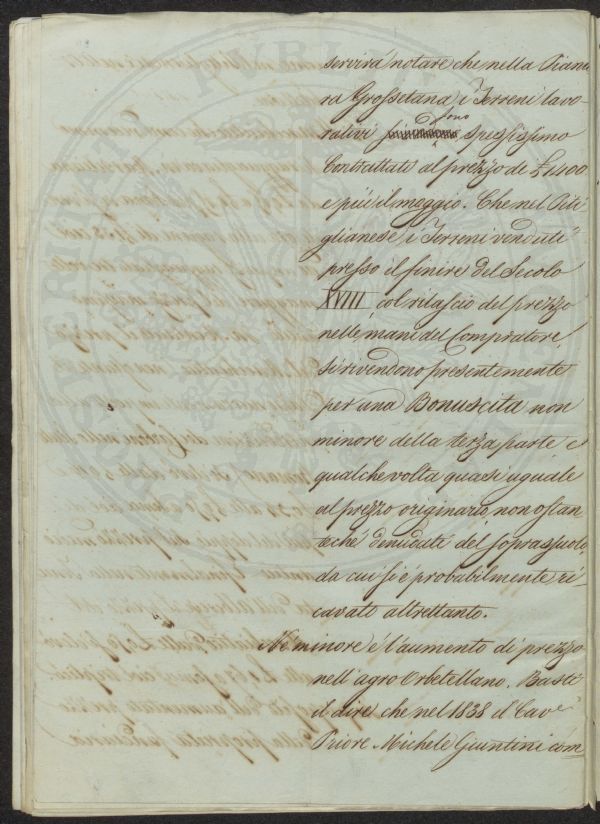 servirà notare che nella Pianu
ra Grossetana i Terreni lavo
rativi sono spessissimo
Contrattati al prezzo de £ 1400
e più il moggio. Che nel Piti
glianese i Terreni venduti
presso il finire del Secolo
XVIII col rilascio del prezzo
nelle mani del Compratore,
si rivendono presentemente
per una Bonuscita non
minore della terza parte e
qualche volta quasi uguale
al prezzo originario non ostan
te ché denudati del soprassuolo,
da cui si è probabilmente ri
cavato altrettanto.
Né minore é l'aumento di prezzo
nell'agro Orbetellano. Basti
il dire che nel 1838 il Cavᵉ
Priore Michele Giuntini com